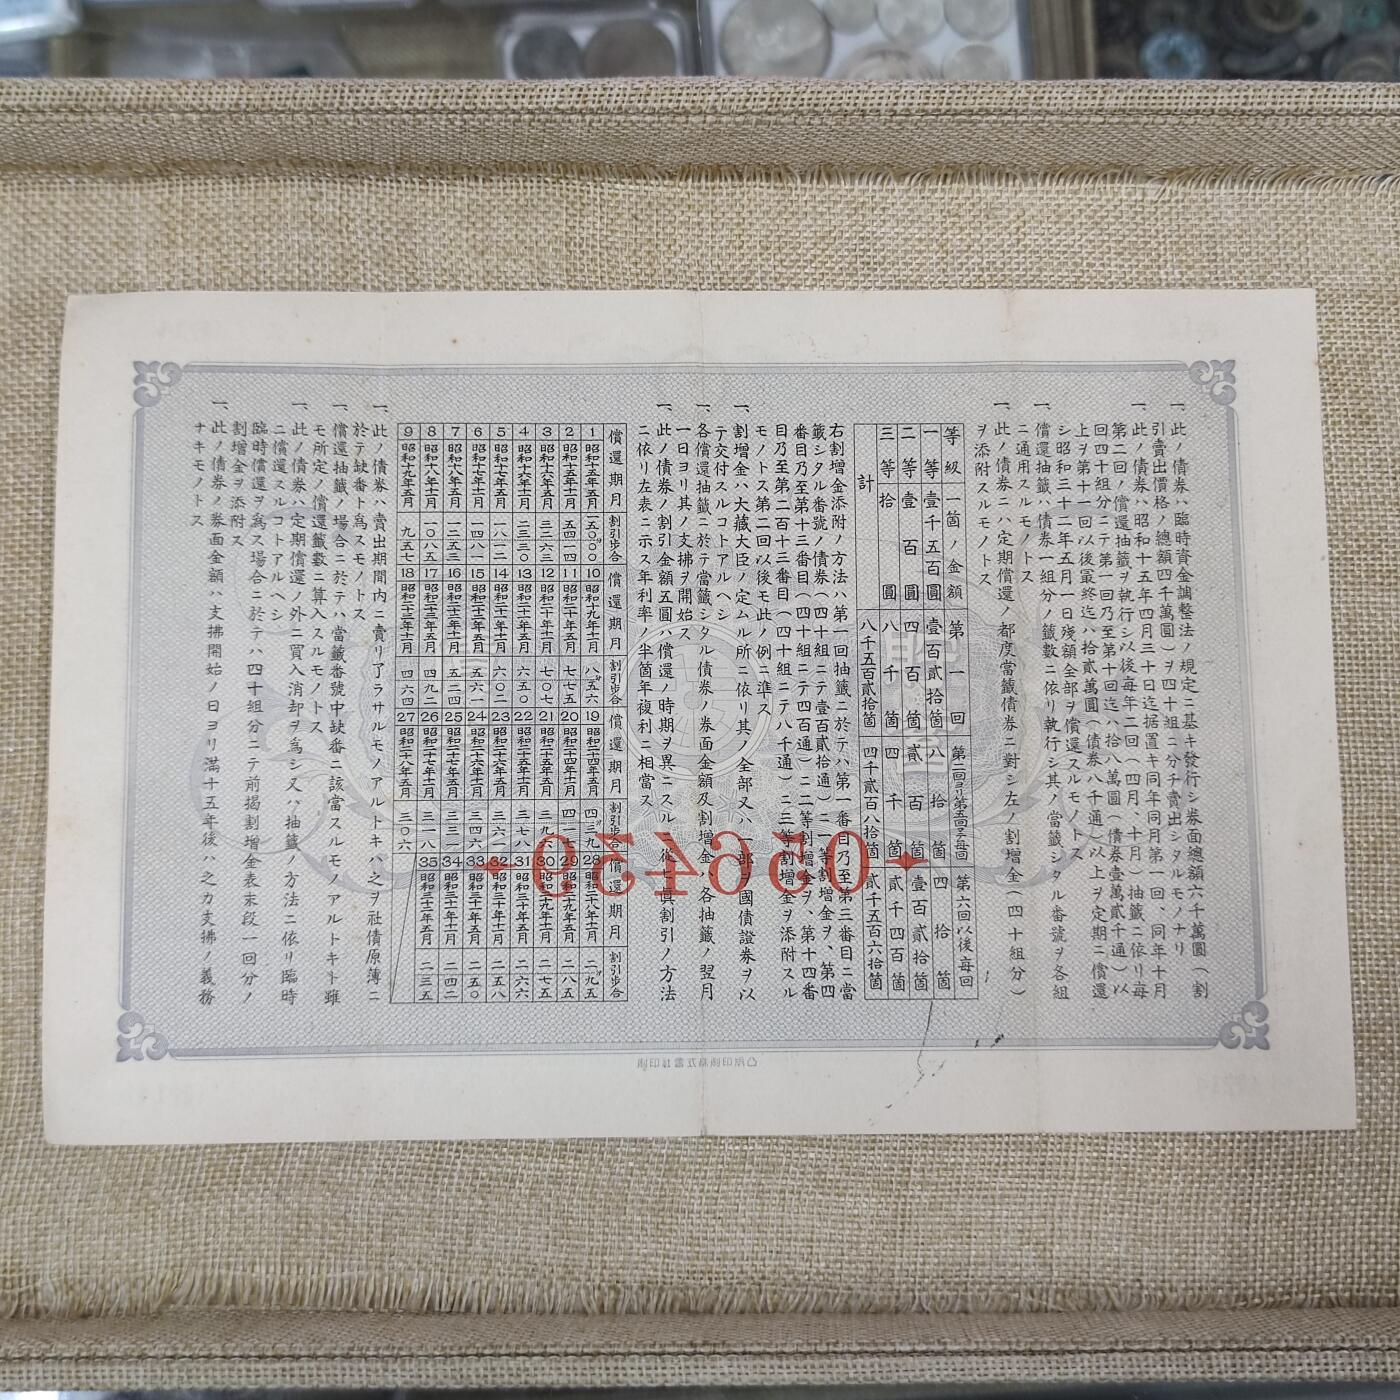 一、此ノ債券ハ臨時資金調整法ノ規定ニ基キ發行シ券面總額六千萬圓(割
引賣出價格ノ總額四千萬圓)ヲ四十組ニ分チ賣出シタルモノナリ
一、此ノ債券ハ昭和十五年四月三十日迄据置キ同年同月第一回、同年十月
第二回ノ償還抽籤ヲ執行シ以後每年二回(四月、十月)抽籤ニ依リ每
回四十組分ニテ第一回乃至第十回迄ハ拾八萬圓(債券壹萬貳千通)以
上ヲ第十一回以後最終迄ハ拾貳萬圓(債券八千通)以上ヲ定期ニ償還
シ昭和三十二年五月一日殘額全部ヲ償還スルモノトス
一、償還抽籤ハ債券一組分ノ籤數ニ依リ執行シ其ノ當籤シタル番號ヲ各組
ニ通用スルモノトス
一、此ノ債券ニハ定期償還ノ都度當籤債券ニ對シ左ノ割增金(四十組分)
ヲ添附スルモノトス
等級 一箇ノ金額 第一回 第二回ヨリ第五回マデ每回 第六回以後每回
一等 壹千五百圓 壹百貳拾箇 八拾箇 四拾箇
二等 壹百圓 四百箇 貳百箇 壹百貳拾箇
三等 拾圓 八千箇 四千箇 貳千四百箇
計 八千五百貳拾箇 四千貳百八拾箇 貳千五百六拾箇
右割增金添附ノ方法ハ第一回抽籤ニ於テハ第一番目乃至第三番目ニ當
籤シタル番號ノ債券(四十組ニテ壹百貳拾通)ニ一等割增金ヲ、第四
番目乃至第十三番目(四十組ニテ四百通)ニ二等割增金ヲ、第十四番
目乃至第二百十三番目(四十組ニテ八千通)ニ三等割增金ヲ添附スル
モノトス第二回以後モ此ノ例ニ準ス
一、割增金ハ大藏大臣ノ定ムル所ニ依リ其ノ全部又ハ一部ヲ國債證券ヲ以
テ交付スルコトアルヘシ
一、各償還抽籤ニ於テ當籤シタル債券ノ券面金額及割增金ハ各抽籤ノ翌月
一日ヨリ其ノ支拂ヲ開始ス
一、此ノ債券ノ割引金額五圓ハ償還ノ時期ヲ異ニスルニ從ヒ眞割引ノ方法
ニ依リ左表ニ示ス年利率ノ半箇年複利ニ相當ス
償還期月 割引步合 償還期月 割引步合 償還期月 割引步合 償還期月 割引步合
1 昭和十五年五月 一五〇〇〇 10 昭和十九年十一月 八五六 19 昭和二十四年五月 四三九 28 昭和二十八年十一月 二九五
2 昭和十五年十一月 五四一四 11 昭和二十年五月 七七五 20 昭和二十四年十一月 四一七 29 昭和二十九年五月 二八五
3 昭和十六年五月 三二六三 12 昭和二十年十一月 七〇七 21 昭和二十五年五月 三九六 30 昭和二十九年十一月 二七五
4 昭和十六年十一月 二三三〇 13 昭和二十一年五月 六五〇 22 昭和二十五年十一月 三七八 31 昭和三十年五月 二六六
5 昭和十七年五月 一八一二 14 昭和二十一年十一月 六〇二 23 昭和二十六年五月 三六一 32 昭和三十年十一月 二五八
6 昭和十七年十一月 一四八二 15 昭和二十二年五月 五六一 24 昭和二十六年十一月 三四六 33 昭和三十一年五月 二五〇
7 昭和十八年五月 一二五三 16 昭和二十二年十一月 五二四 25 昭和二十七年五月 三三一 34 昭和三十一年十一月 二四二
8 昭和十八年十一月 一〇八五 17 昭和二十三年五月 四九二 26 昭和二十七年十一月 三一八 35 昭和三十二年五月 二三五
9 昭和十九年五月 九五七 18 昭和二十三年十一月 四六四 27 昭和二十八年五月 三〇六
一、此ノ債券ハ賣出期間內ニ賣リ了ラサルモノアルトキハ之ヲ社債原簿ニ
於テ缺番ト爲スモノトス
一、償還抽籤ノ場合ニ於テハ當籤番號中缺番ニ該當スルモノアルトキト雖
モ所定ノ償還籤數ニ算入スルモノトス
一、此ノ債券ハ定期償還ノ外ニ買入消却ヲ爲シ又ハ抽籤ノ方法ニ依リ臨時
ニ償還スルコトアルヘシ
臨時償還ヲ爲ス場合ニ於テハ四十組分ニテ前揭割增金表末段一回分ノ
割增金ヲ添附ス
一、此ノ債券ノ券面金額ハ支拂開始ノ日ヨリ滿十五年後ハ之カ支拂ノ義務
ナキモノトス
056450
凸版印刷株式會社印刷